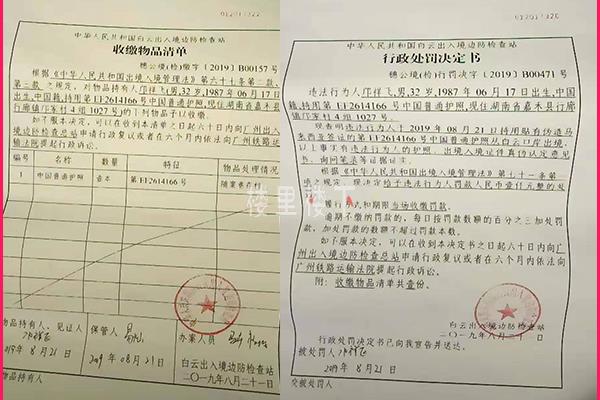 中华人民共和国白云出入境边防检查站
收缴物品清单
穗公境(检)缴字〔2019〕B00157号
根据《中华人民共和国出境入境管理法》第六十七条第二款、
第三款之规定，对物品持有人邝祥飞,男,32岁,1987年06月17日
出生,中国籍,持用第EF2614166号中国普通护照,现住湖南省嘉禾县行
廊镇邝家村4组1027号)的下列物品予以收缴。
如不服本决定，可以在收到本清单之日起六十日内向广州出入
境边防检查总站申请行政复议或者在六个月内依法向广州铁路运
输法院提起行政诉讼。
编号 名称 数量 特征 物品处理情况
1 中国普通护照 壹本 第EF2614166号 随案卷存档
物品持有人、见证人 保管人 办案人员
2019年8月21日 2019年08月21日
白云出入境边防检查站
二〇一九年八月二十一日
物品持有人
中华人民共和国白云出入境边防检查站
行政处罚决定书
穗公境(检)行罚决字〔2019〕B00471号
违法行为人邝祥飞,男,32岁,1987年06月17日出生,中国
籍,持用第EF2614166号中国普通护照,现住湖南省嘉禾县行廊
镇邝家村4组1027号。
现查明违法行为人于2019年08月21日持用贴有伪造马
来西亚签证的第EF2614166号中国普通护照从白云口岸出境，
以上事实有违法行为人的护照、出境入境证件真伪认定意见
书、询问笔录等证据证实。
根据《中华人民共和国出境入境管理法》第七十一条第
项之规定，现决定给予违法行为人罚款人民币壹仟元整的处
罚。
履行方式和期限当场收缴罚款。
逾期不缴纳罚款的，每日按罚款数额的百分之三加处罚
款，加处罚款的数额不超过罚款本数。
如不服本决定，可以在收到本决定书之日起六十日内向广
州出入境边防检查总站申请行政复议或者在六个月内依法向
广州铁路运输法院提起行政诉讼。
附：收缴物品清单共壹份。
白云出入境边防检查站
二〇一九年八月二十一日
行政处罚决定书已向我宣告并送达。
被处罚人
2019年8月21日
交被处罚人
楼里楼